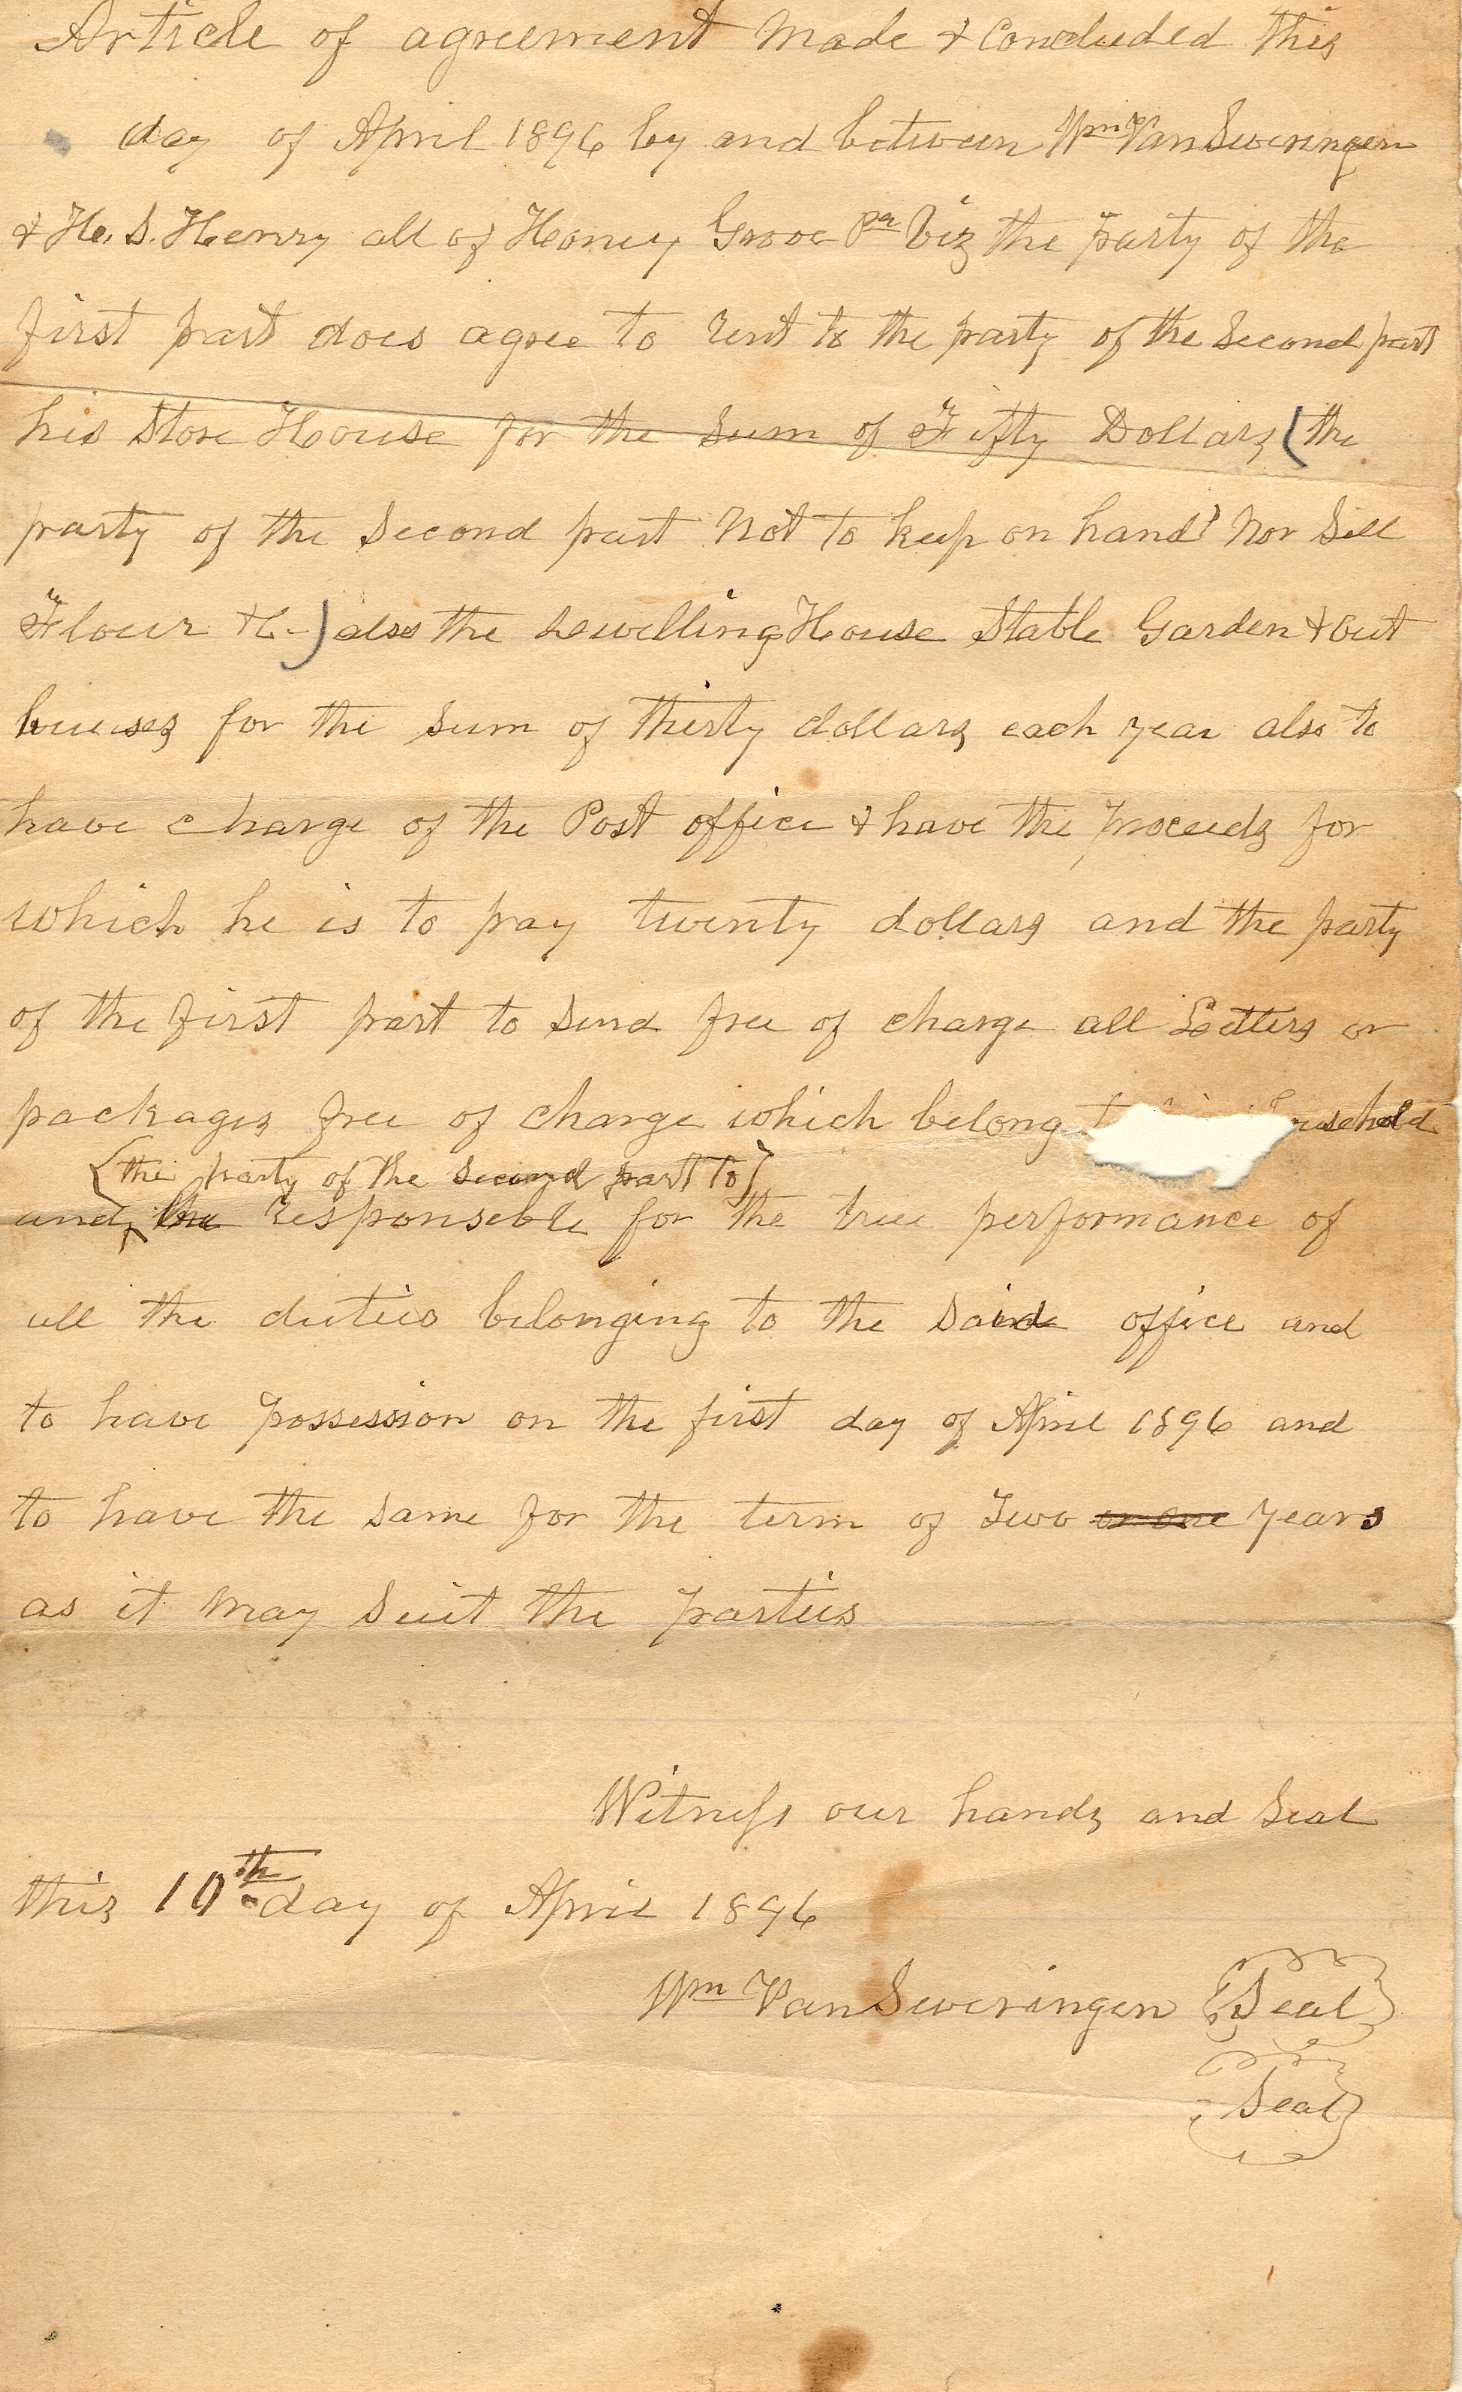 Article of agreement Made & Concluded this
day of April 1896 by and between Wm VanSweringen
& H. S. Henry all of Honey Grove Pa Viz the party of the
first part does agree to rent to the party of the Second part
his Store House for the Sum of Fifty Dollars (the
party of the Second part Not to keep on hand Nor Sell
Flour &c.) also the dwelling House Stable Garden & out
houses for the Sum of thirty dollars each year also to
have charge of the Post office & have the proceeds for
which he is to pay twenty dollars and the party
of the first part to Send free of charge all Letters or
packages free of charge which belong household
(the party of the Second part to)
and the responseble for the true performance of
all the duties belonging to the Said office and
to have possession on the first day of April 1896 and
to have the Same for the term of Two or one years
as it May Suit the parties
Witness our hands and Seal
this 10th day of April 1896
Wm VanSweringen Seal
Seal